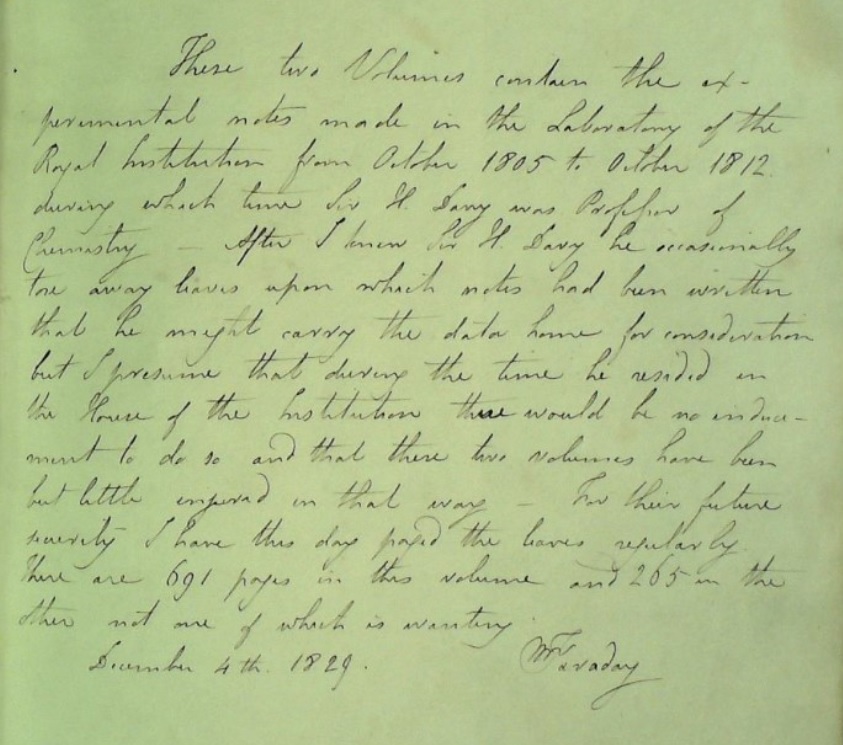 These two Volumes contain the ex-
perimental notes made in the Laboratory of the
Royal Institution from October 1805 to October 1812.
during which time Sir H. Davy was Professor of
Chemistry — After I knew Sir H. Davy he occasionally
tore away leaves upon which notes had been written
that he might carry the data home for consideration
but I presume that during the time he resided in
the House of the Institution there would be no induce-
ment to do so and that these two volumes have been
but little injured in that way — For their future
security I have this day paged the leaves regularly.
There are 691 pages in this volume and 265 in the
other not one of which is wanting.
December 4th. 1829.
M Faraday